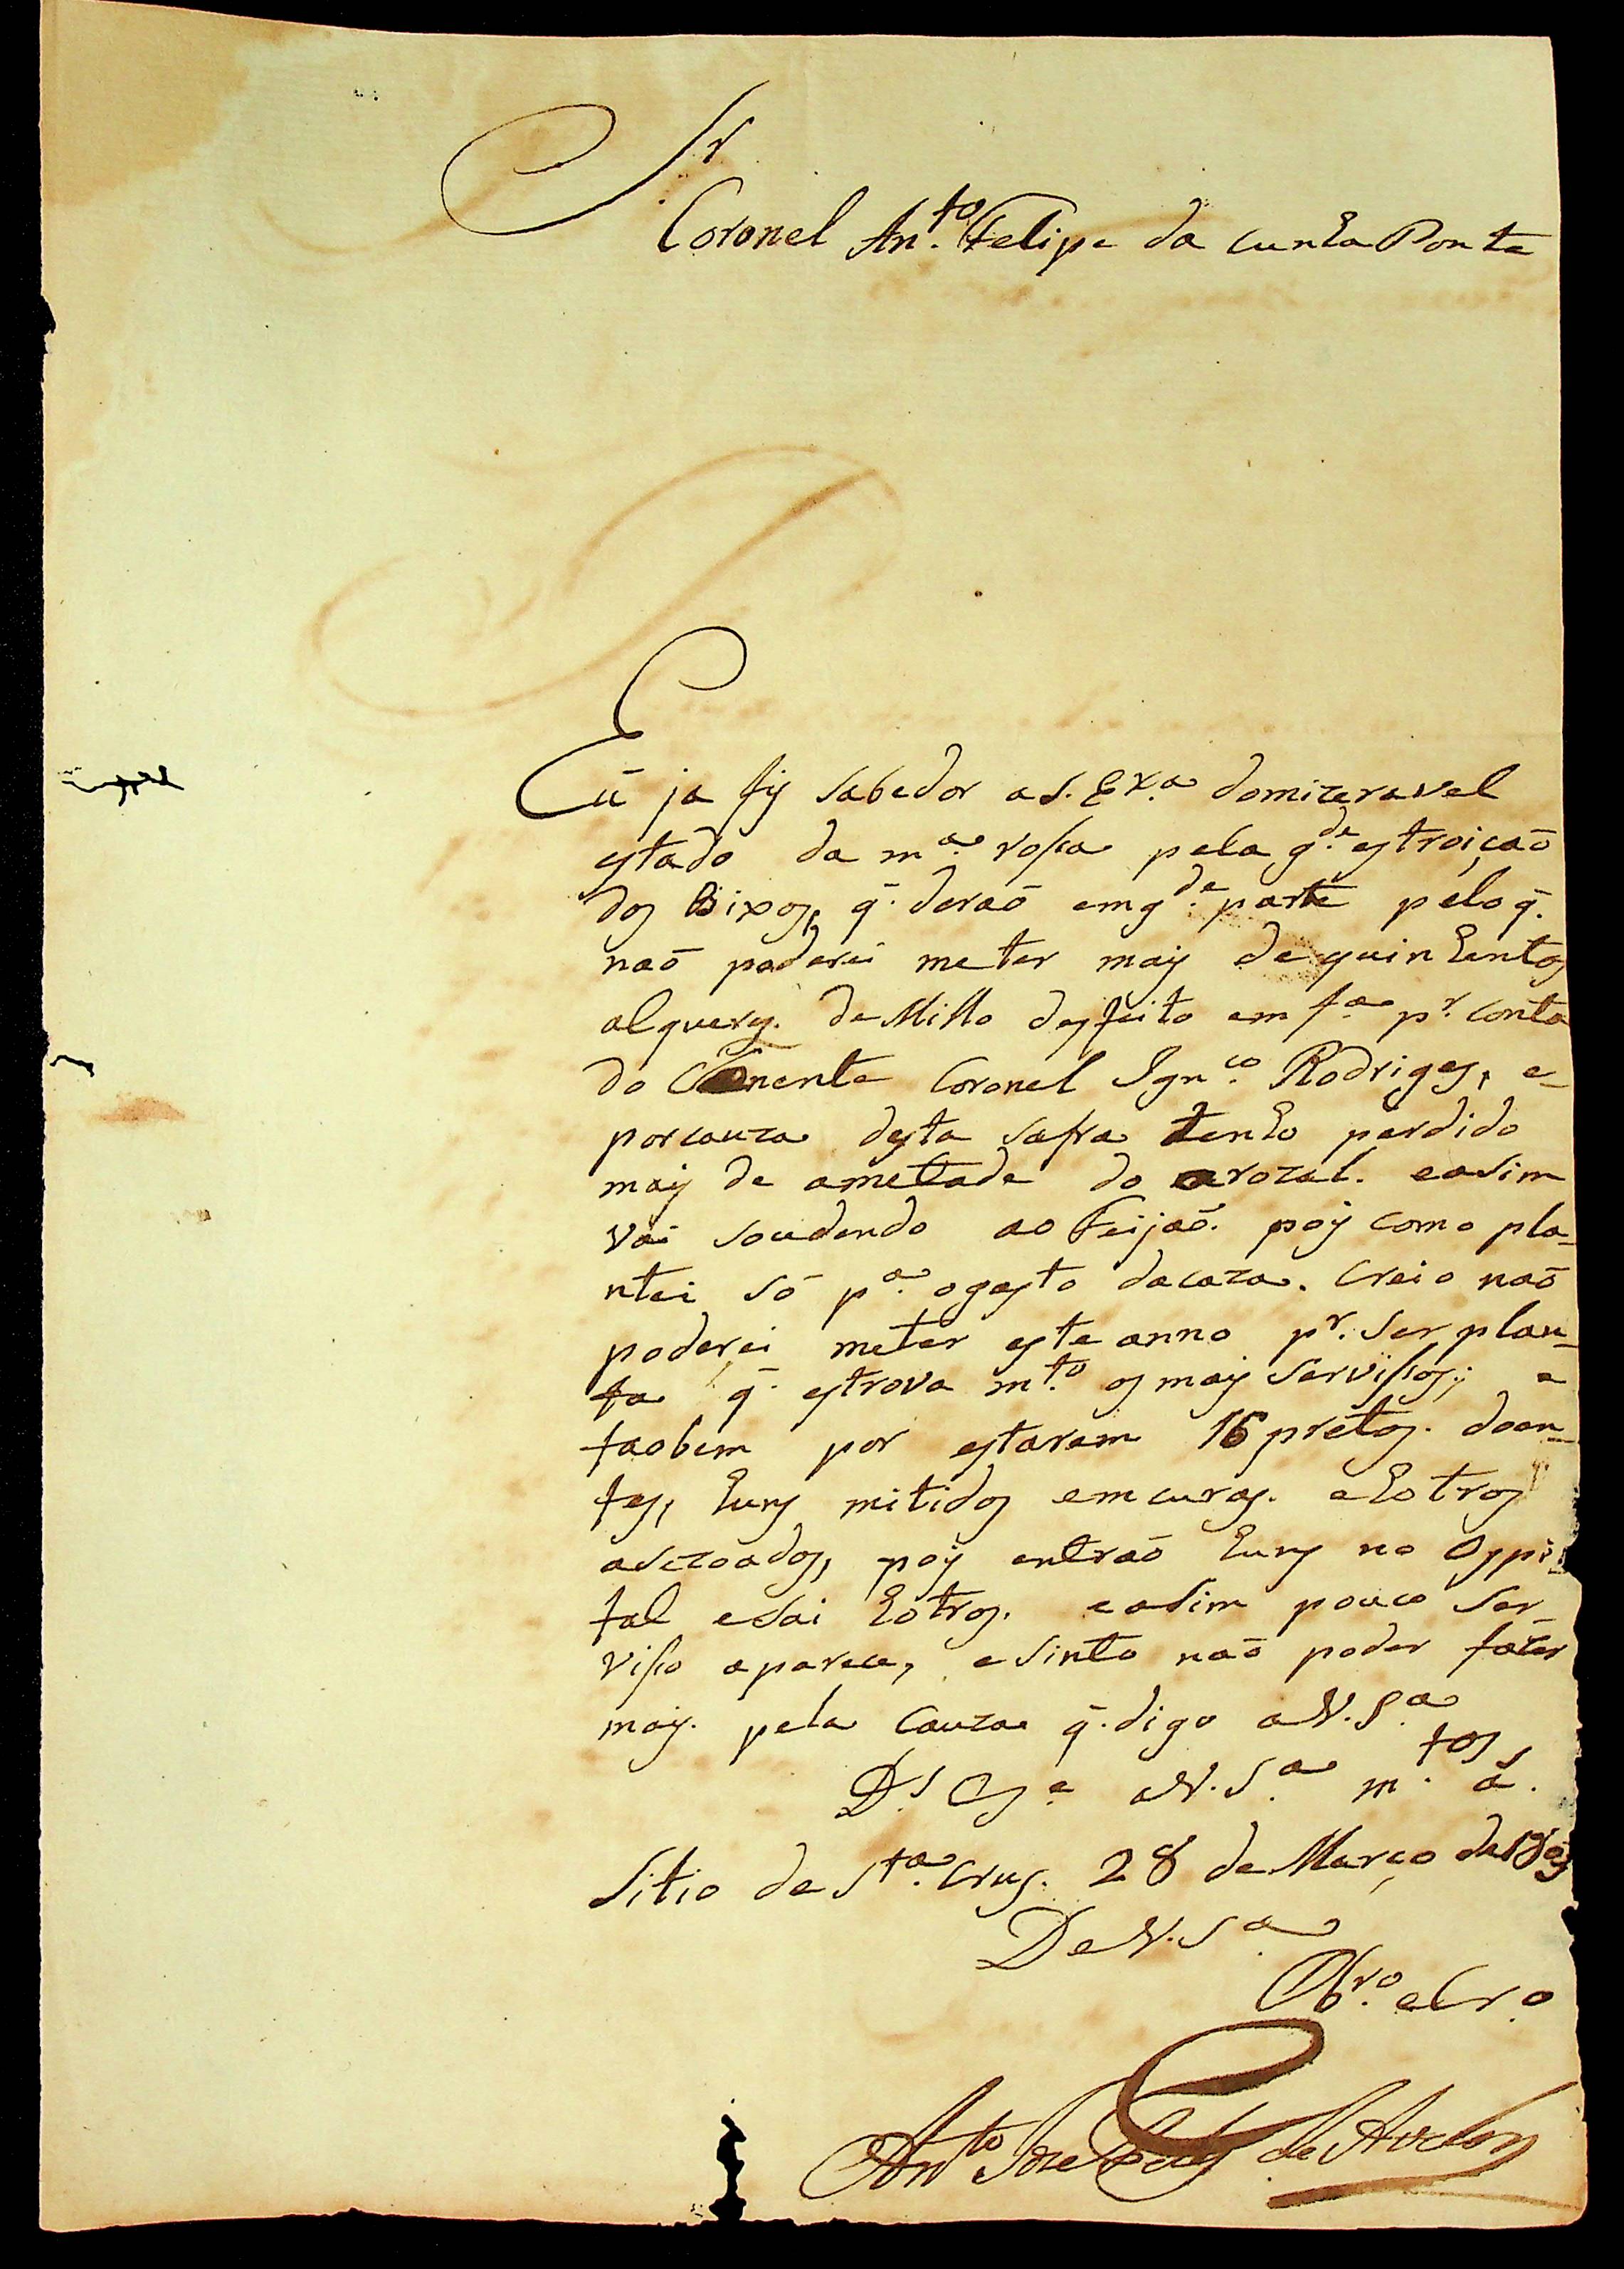 Sr
Coronel An.to Felipe da cunha Ponte
Eū ja fis Sabedor a S. Exa. do mizeravel
estado da ma. rossa pela gde. estroiçaõ
dos Bixos, q̄. deraõ em gde. parte pelo q̄.
naõ poderei meter mais de quinhentos
alqueres. de Milho desfeito em fa. pr. conta
do Tenente Coronel Ignco. Rodriges, e
por cauza desta safra tenho perdido
mais de ametade do arozal. e asim
vai soudendo ao Feijaõ. pois como pla-
ntei só pa. o gasto da caza. Creio naõ
poderei meter este anno pr. Ser plan-
ta q̄. estrova mto. os mais Servissos; e
taobem por estarem 16 pretos. doen-
tes, huns mitidos em curas. e hotros
asezoados, pois entraõ huns no Ospi-
tal e Sai hotros. e asim pouco Ser-
visso aparece, e Sinto naõ poder fazer
mais. pela Cauza q̄. digo a V. Sa.
Ds. Ge. a V. Sa. m.tos a.s
Sitio de Sta. Crus. 28 de Março de
De V. Sa.
Obro. e Cro.
Anto Joze de